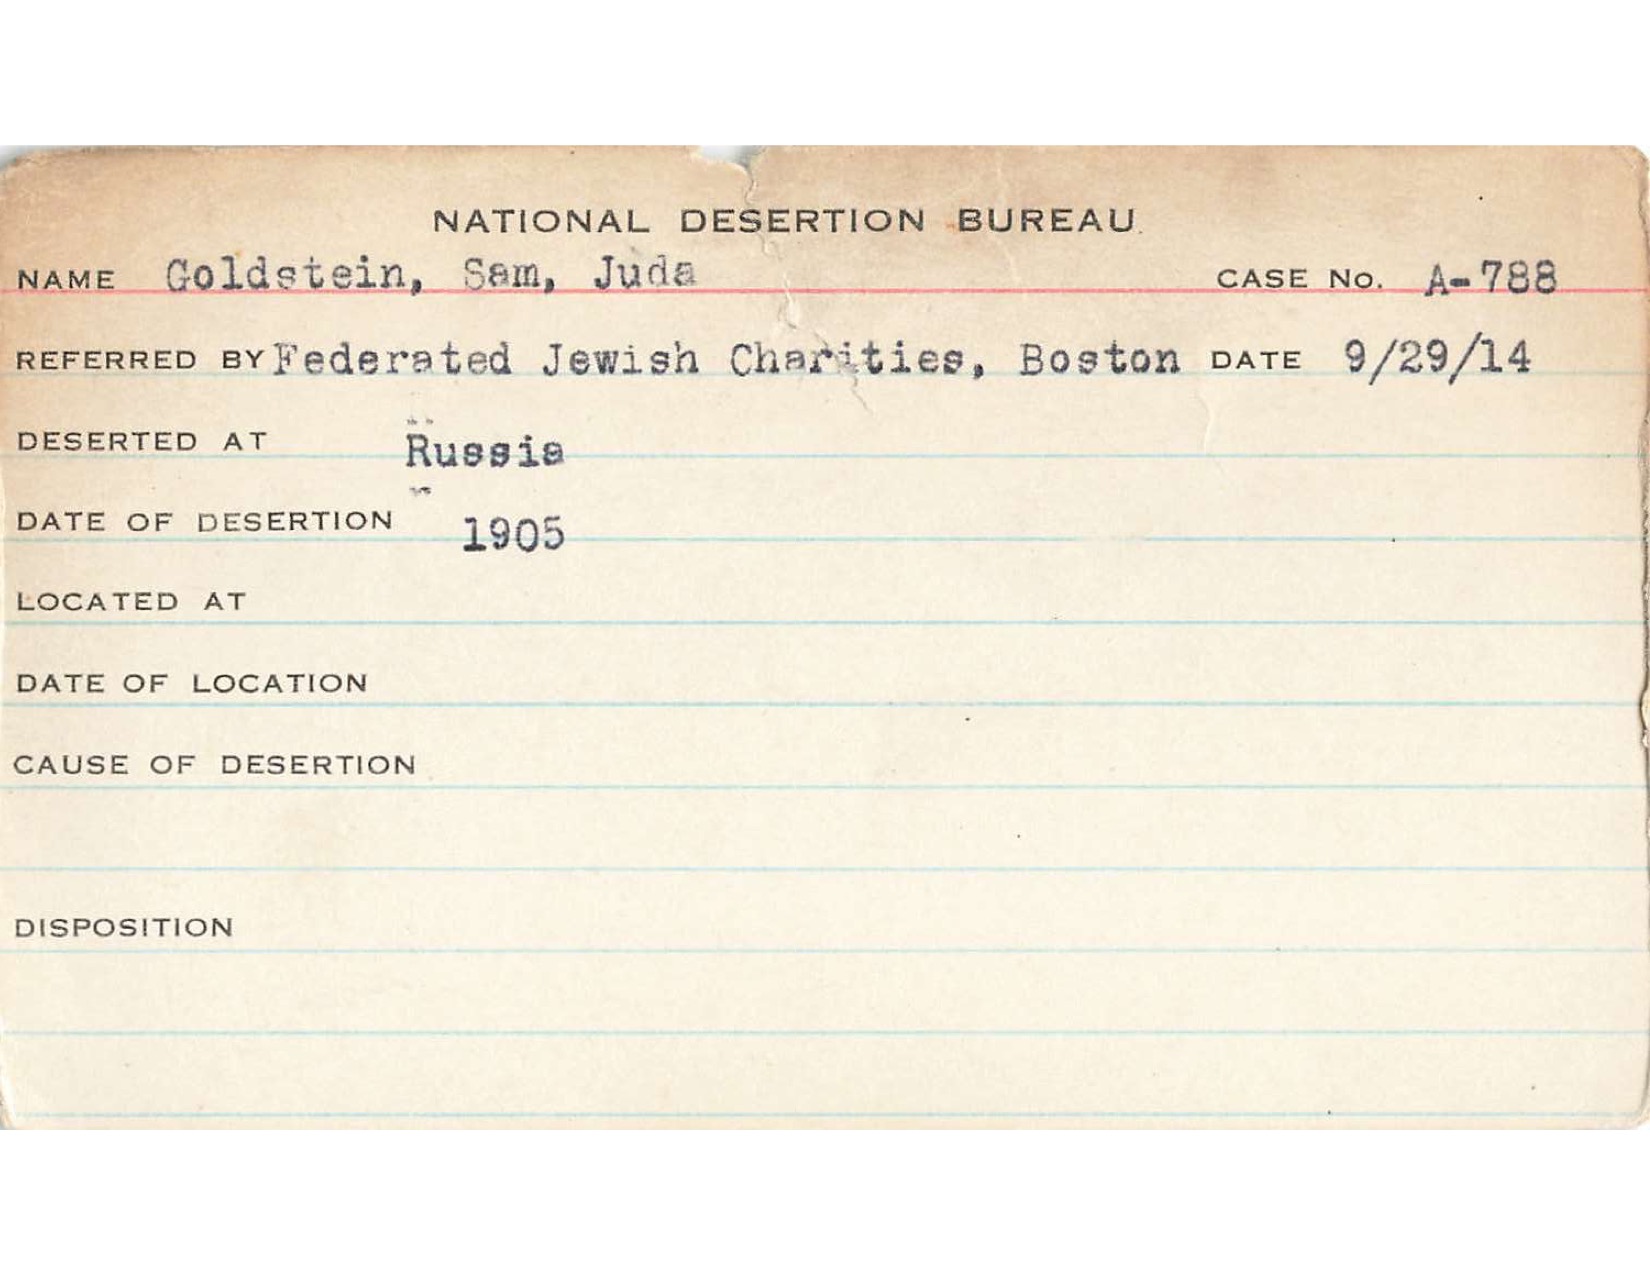 NATIONAL DESERTION BUREAU
NAME Goldstein, Sam, Juda CASE No. A-788
REFERRED BY Federated Jewish Charities, Boston DATE 9/29/14
DESERTED AT Russia
DATE OF DESERTION 1905
LOCATED AT
DATE OF LOCATION
CAUSE OF DESERTION
DISPOSITION